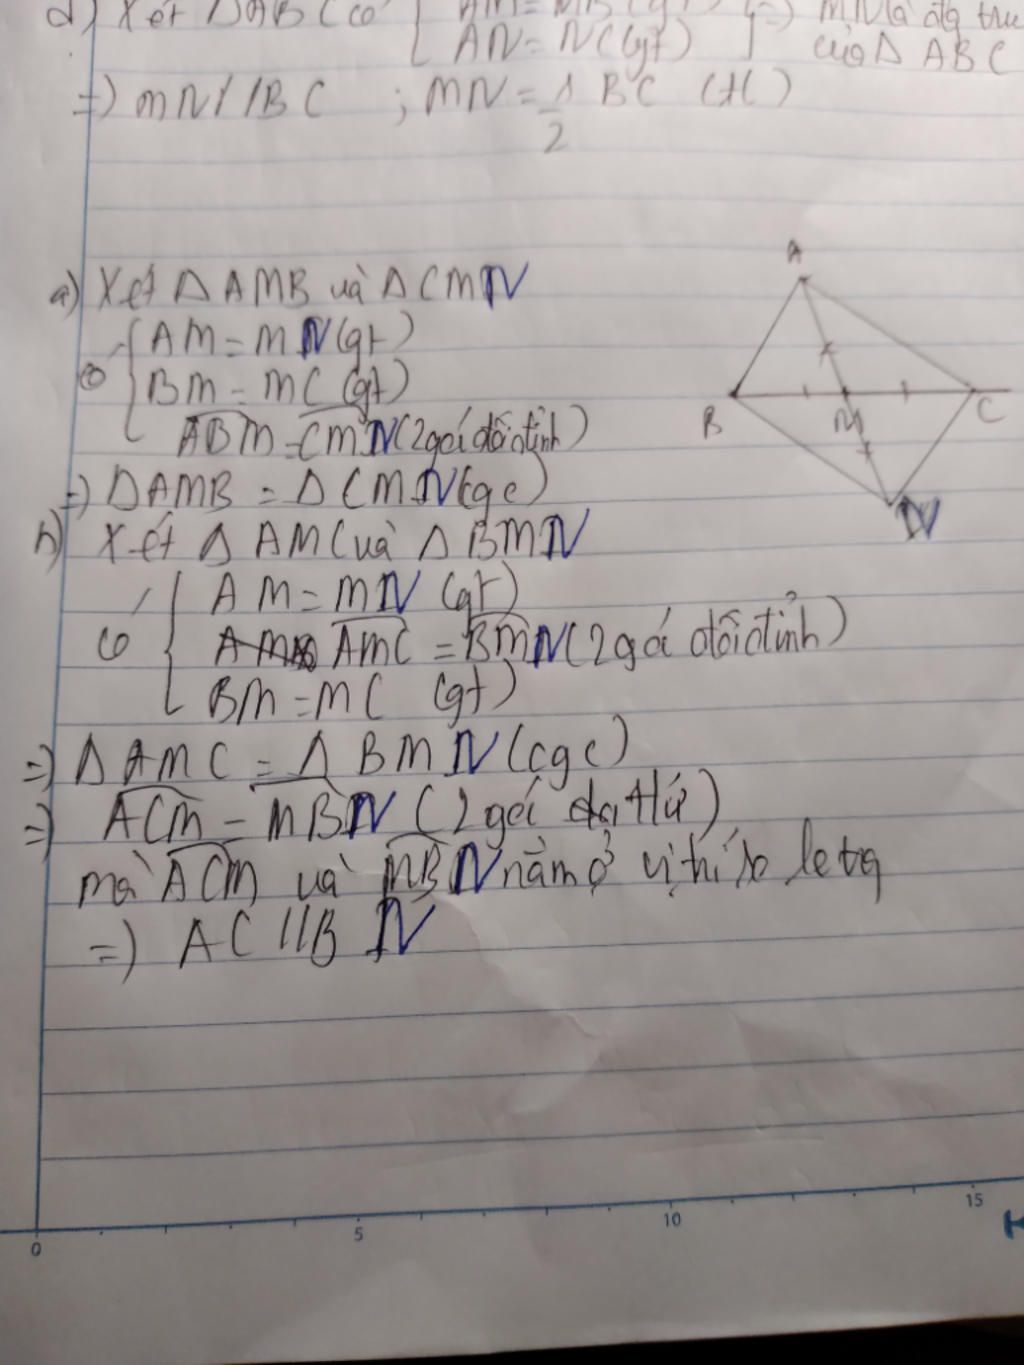 d) Xét ΔABC có { AM = MB (gt) } => MN là đtg
AN = NC (gt) của Δ ABC
=) MN//BC ; MN = 1/2 BC (tc)
A
B
M
C
N
a) Xét Δ AMB và Δ CMN
AM = MN (gt)
có BM = MC (gt)
ABM = CMN (2 góc đối đỉnh)
=) ΔAMB = Δ CMN (cgc)
b) Xét Δ AMC và Δ BMN
AM = MN (gt)
có AMC = BMN (2 góc đối đỉnh)
BM = MC (gt)
=) Δ AMC = Δ BMN (cgc)
=) ACM = MBN (2 góc)
mà ACM và MBN nằm ở vị trí so le tg
=) AC // BN
0 5 10 15